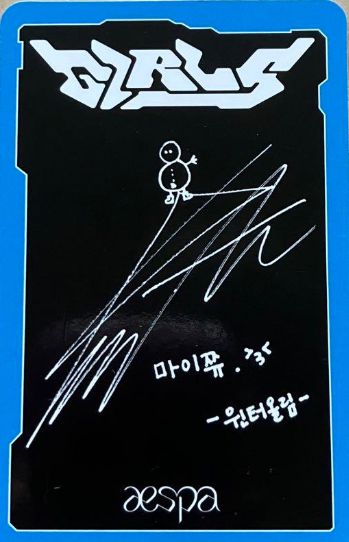 GIRLS
마이쮸 . >3<
-윈터올림-
aespa